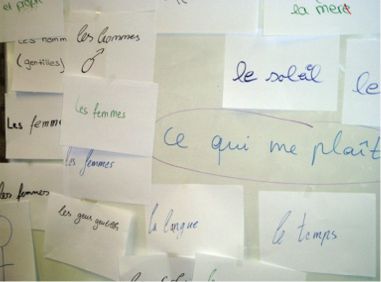 et papa
la mer
les hommes
(gentilles)
les hommes
le soleil
le
Les femmes
Les femmes
ce qui me plaît
les femmes
les femmes
les gens gentils
la langue
le temps